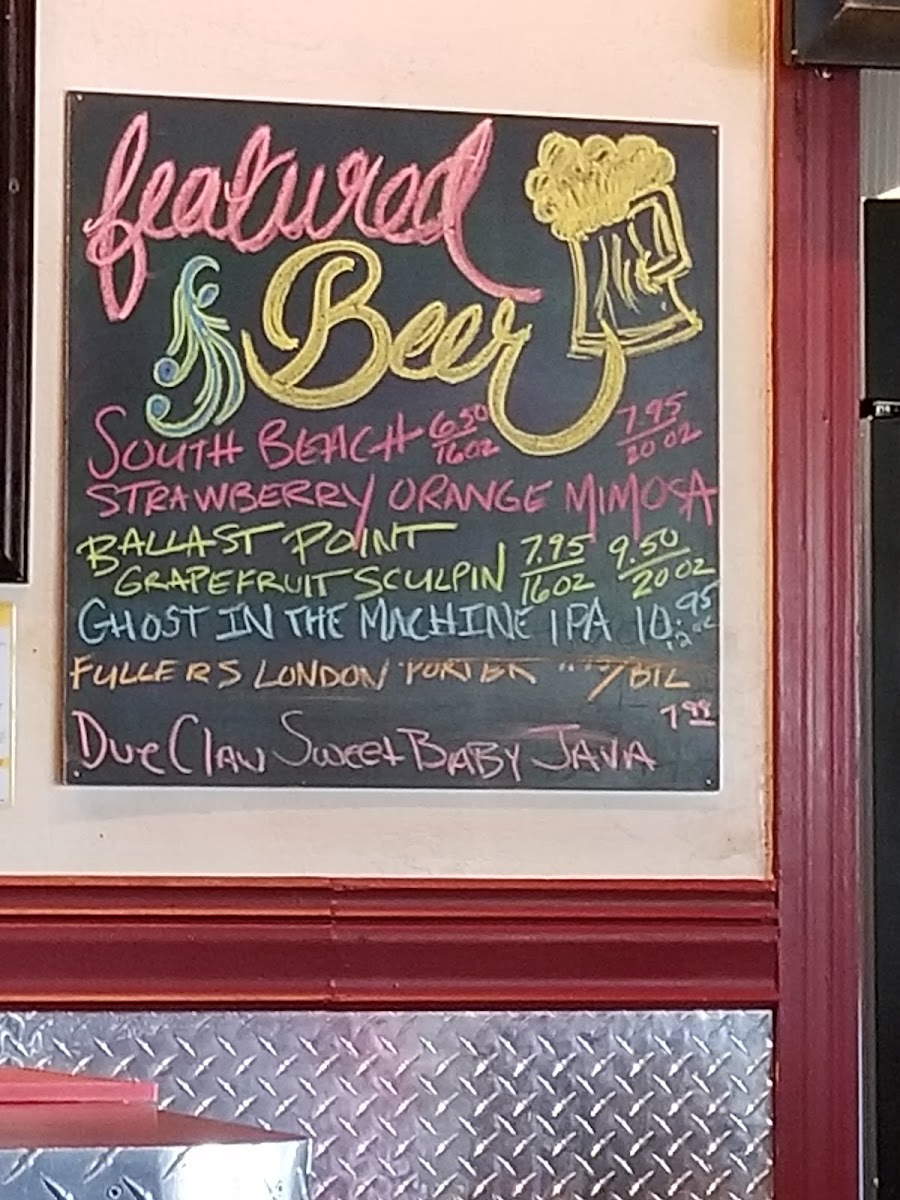 featured
Beer
SOUTH BEACH 6.50/16oz 7.95/20oz
STRAWBERRY ORANGE MIMOSA
BALLAST POINT
GRAPEFRUIT SCULPIN 7.95/16oz 9.50/20oz
GHOST IN THE MACHINE IPA 10.95
12oz
FULLERS LONDON PORTER /BTL
Due Claw Sweet BABY JAVA